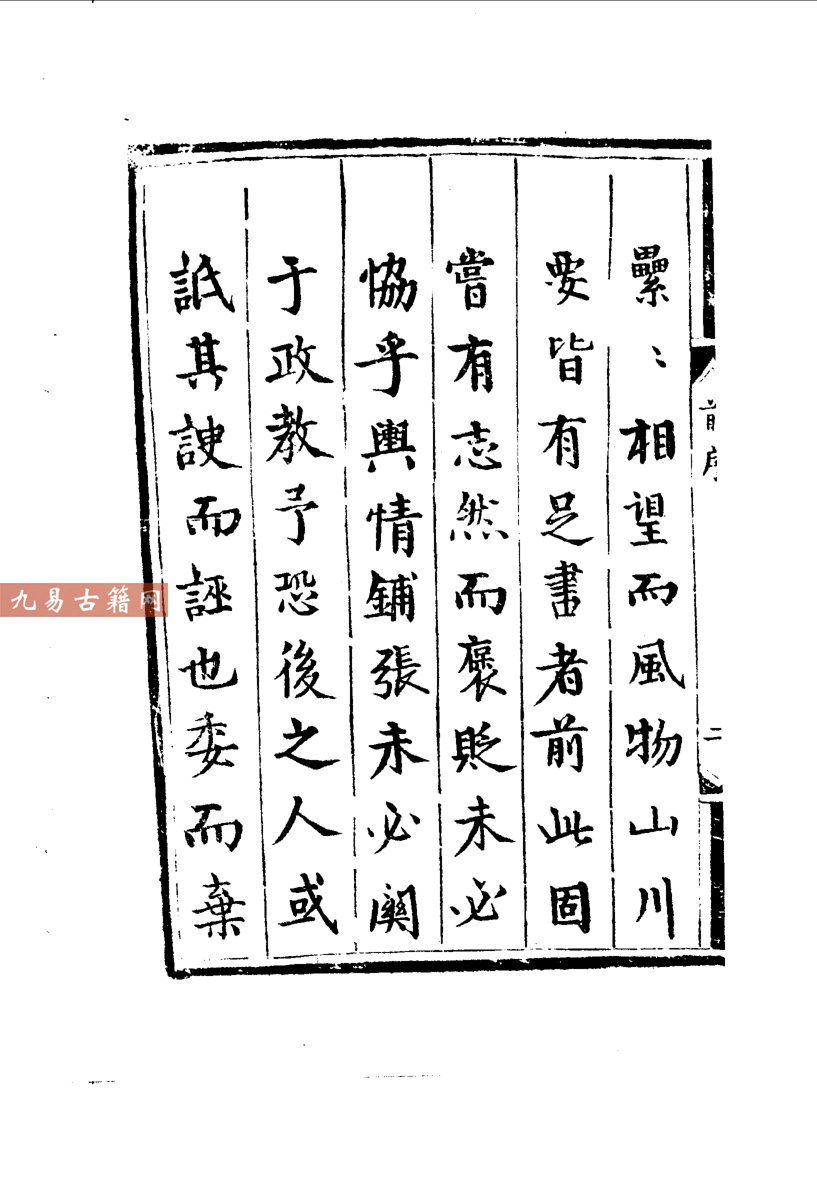 纍〻相望而風物山川
要皆有足書者前此固
嘗有志然而褒貶未必
恊乎輿情鋪張未必関
于政教予恐後之人或
詆其諛而誣也委而棄
前序
二
九易古籍网